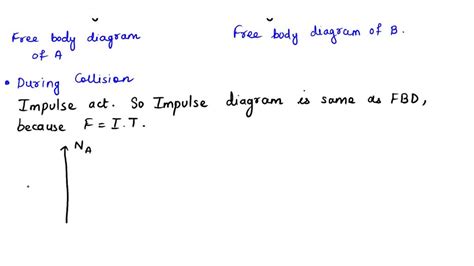 Free body diagram of A
Free body diagram of B.
• During Collision
Impulse act. So Impulse diagram is same as FBD,
because F = I.T.
N_A